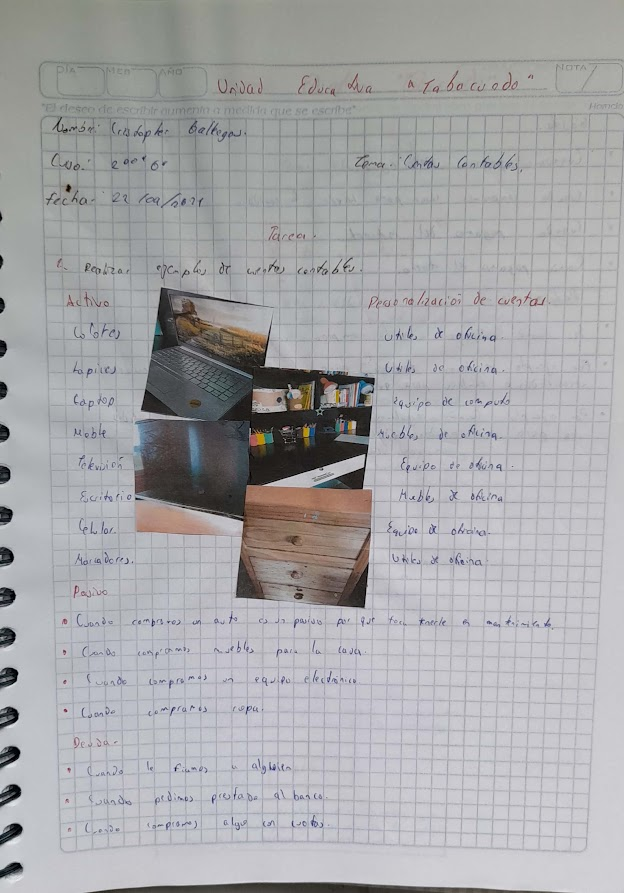 DÍA MES AÑO NOTA
Unidad Educativa "Tabacundo"
"El deseo de escribir aumenta a medida que se escribe"
Nombre: Cristopher Gallegos.
Curso: 2do
Tema: Cuentas Contables.
Fecha: 22
Tarea.
Realizar ejemplos de cuentas contables.
Activo Personalización de cuentas.
Colores Utiles de oficina
Lapices Utiles de oficina.
Laptop Equipo de computo
Mueble Muebles de oficina.
Televisión Equipo de oficina.
Escritorio Muebles de oficina
Celular. Equipo de oficina.
Marcadores. Utiles de oficina
Pasivo
• Cuando compramos un auto es un pasivo por que toca tenerle en mantenimiento.
• Cuando compramos muebles para la casa.
• Cuando compramos un equipo electrónico
• Cuando compramos ropa.
Deuda.
• Cuando le fiamos a alguien
• Cuando pedimos prestado al banco.
• Cuando compramos algo con cuotas.